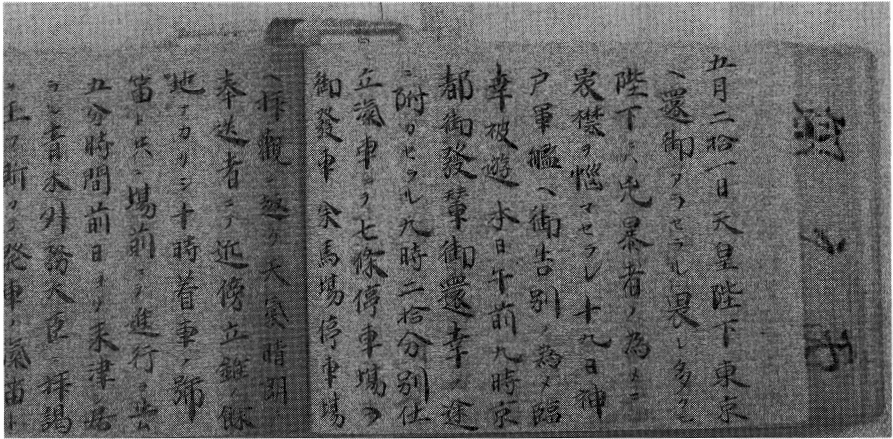 五月二拾一日天皇陛下東京
ヘ還御アラセラル畏レ多クモ
陛下ハ兇暴者ノ為メニ
宸襟ヲ悩マセラレ十九日神
戸軍艦ヘ御告別ノ為メ臨
幸被遊本日午前九時京
都御發輦御還幸ノ途
ニ附カセラル九時二拾分別仕
立滊車ニテ七條停車場ヲ
御發車余馬場停車場
ヘ拝観ニ趣ク大氣晴朗
奉送者ニテ近傍立錐ノ餘
地ナカリシ十時着車ノ號
笛ト共ニ場前ニテ進行ヲ
五分時間前日ヨリ来津
青木外務大臣ニ拝謁
發車ノ滊笛ト